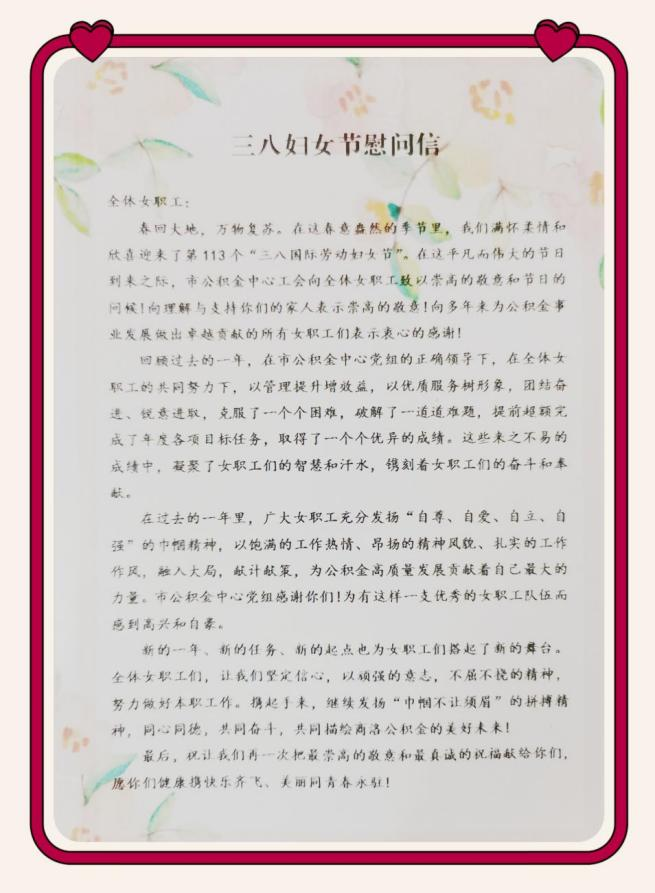 三八妇女节慰问信
全体女职工：
春回大地，万物复苏。在这春意盎然的季节里，我们满怀柔情和
欣喜迎来了第113个“三八国际劳动妇女节”。在这平凡而伟大的节日
到来之际，市公积金中心工会向全体女职工致以崇高的敬意和节日的
问候！向理解与支持你们的家人表示崇高的敬意！向多年来为公积金事
业发展做出卓越贡献的所有女职工们表示衷心的感谢！
回顾过去的一年，在市公积金中心党组的正确领导下，在全体女
职工的共同努力下，以管理提升增效益，以优质服务树形象，团结奋
进、锐意进取，克服了一个个困难，破解了一道道难题，提前超额完
成了年度各项目标任务，取得了一个个优异的成绩。这些来之不易的
成绩中，凝聚了女职工们的智慧和汗水，镌刻着女职工们的奋斗和奉
献。
在过去的一年里，广大女职工充分发扬“自尊、自爱、自立、自
强”的巾帼精神，以饱满的工作热情、昂扬的精神风貌、扎实的工作
作风，融入大局，献计献策，为公积金高质量发展贡献着自己最大的
力量。市公积金中心党组感谢你们！为有这样一支优秀的女职工队伍而
感到高兴和自豪。
新的一年、新的任务、新的起点也为女职工们搭起了新的舞台。
全体女职工们，让我们坚定信心，以顽强的意志，不屈不挠的精神，
努力做好本职工作。携起手来，继续发扬“巾帼不让须眉”的拼搏精
神，同心同德，共同奋斗，共同描绘商洛公积金的美好未来！
最后，祝让我们再一次把最崇高的敬意和最真诚的祝福献给你们，
愿你们健康携快乐齐飞、美丽同青春永驻！